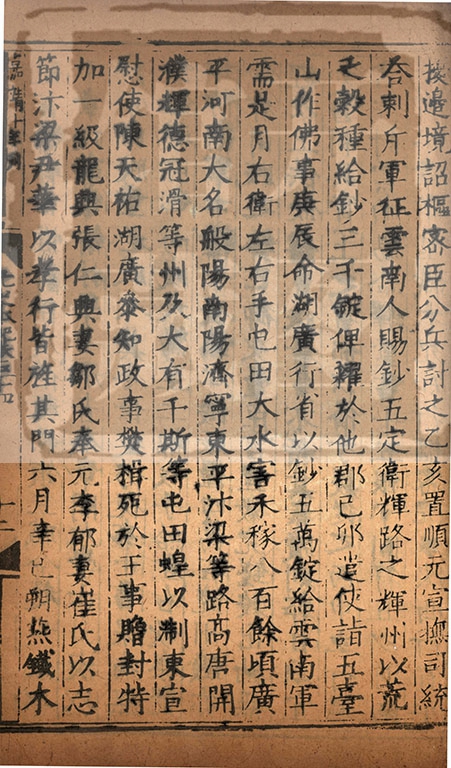 擾邊境詔樞密臣分兵討之乙亥置順元宣撫司統
荅剌斥軍征雲南人賜鈔五定衛輝路之輝州以荒
乏穀種給鈔三千錠俾糴於他郡己卯遣使詣五臺
山作佛事庚辰命湖廣行省以鈔五萬錠給雲南軍
需是月右衛左右手屯田大水害禾稼八百餘頃廣
平河南大名般陽南陽濟寧東平汴梁等路高唐開
濮輝德冠滑等州及大有千斯等屯田蝗以制東宣
慰使陳天祐湖廣參知政事樊楫死於王事贈封特
加一級龍興張仁興妻鄒氏奉元李郁妻崔氏以志
節汴梁尹華以孝行皆旌其門六月辛巳朔燕鐵木
嘉靖十年刊